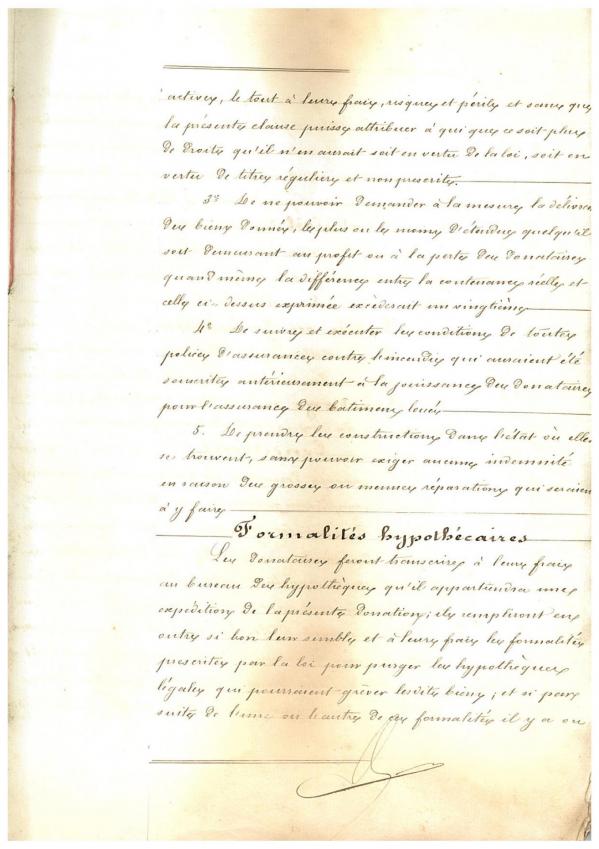 actives, le tout à leurs frais, risques et périls et sans que
la présente clause puisse attribuer à qui que ce soit plus
de droits qu'il n'en aurait soit en vertu de la loi, soit en
vertu de titres réguliers et non prescrits.
3° De ne pouvoir demander à la mesure la délivrance
des biens donnés, le plus ou le moins d'étendue quelqu'il
soit demeurant au profit ou à la perte des donataires
quand même la différence entre la contenance réelle et
celle ci-dessus exprimée excèderait un vingtième
4° De suivre et exécuter les conditions de toutes
polices d'assurances contre l'incendie qui auraient été
souscrites antérieurement à la jouissance des donataires
pour l'assurance des bâtiments
5. De prendre les constructions dans l'état où elles
se trouvent, sans pouvoir exiger aucune indemnité
en raison des grosses ou menues réparations qui seraient
à y faire
Formalités hypothécaires
Les donataires feront transcrire à leurs frais
au bureau des hypothèques qu'il appartiendra une
expédition de la présente donation; ils rempliront en
outre si bon leur semble et à leurs frais les formalités
prescrites par la loi pour purger les hypothèques
légales qui pourraient grèver lesdits biens; et si par
suite de l'une ou l'autre de ces formalités il y a ou